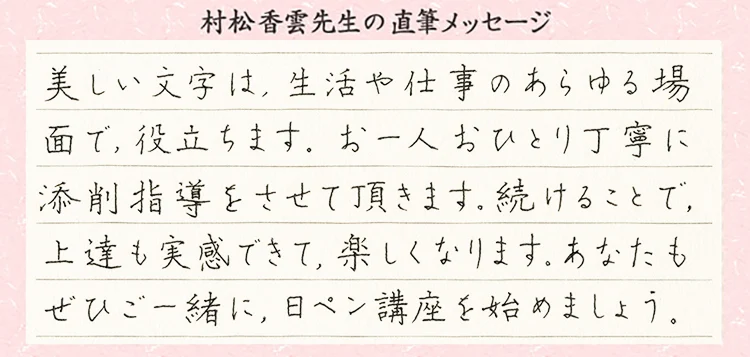 村松香雲先生の直筆メッセージ
美しい文字は,生活や仕事のあらゆる場
面で,役立ちます。お一人おひとり丁寧に
添削指導をさせて頂きます。続けることで,
上達も実感できて,楽しくなります。あなたも
ぜひご一緒に,日ペン講座を始めましょう。